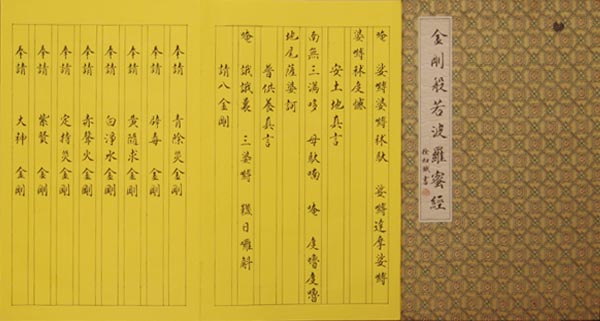 金剛般若波羅蜜經
唵 娑嚩婆嚩秫馱 娑嚩達摩娑嚩
婆嚩秫度憾
安土地真言
南無三滿哆 母馱喃 唵 度嚕度嚕
地尾薩婆訶
普供養真言
唵 誐誐曩 三婆嚩 韈日囉斛
請八金剛
奉請 青除災金剛
奉請 辟毒金剛
奉請 黃隨求金剛
奉請 白淨水金剛
奉請 赤聲火金剛
奉請 定持災金剛
奉請 紫賢金剛
奉請 大神金剛